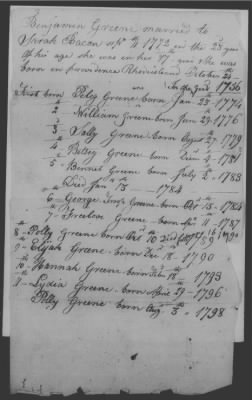 Benjamin Greene married to
Sarah Bacon 1772 in the 23 year
of his age she was in her 17 year she was
born in providence Rhodeisland October 25
in the year 1756
First born Polly Greene born Jan 23 1774
2 William Greene born Jan 29 1776
3 Sally Greene born Aug 27 1779
4 Betsey Greene born 4 1781
5 Bennet Greene born July 2 1783
Died Jan 13 1784
6 George Greene born Oct 15 1784
7 Freelove Greene born 11 1787
8 Polly Greene born Oct 10 1789
9 Elijah Greene born Dec 18 1790
10 Hannah Greene born 18 1793
11 Lydia Greene born April 29 1796
Polly Greene born Aug 3 1798